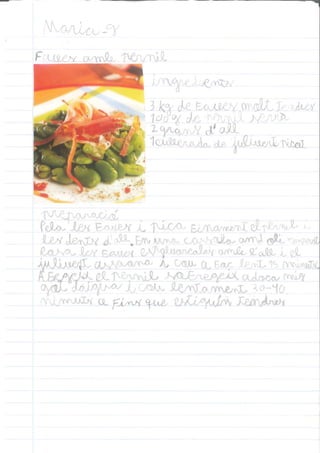 Maria-8
Faves amb pernil
ingredients
3 kg de Faves molt Tendres
100 g de pernil serra
2 grans d'all
1 cullerada de julivert picat
preparació
Pela les Faves i Pica Finament el pernil i
les dents d'all. En una cassola amb oli
les Faves amb l'all i el
julivert i cou a Foc lent 15 minuts
el pernil
d'aigua i cou lentament 30-40
minuts a Fins que estiguin Tendres